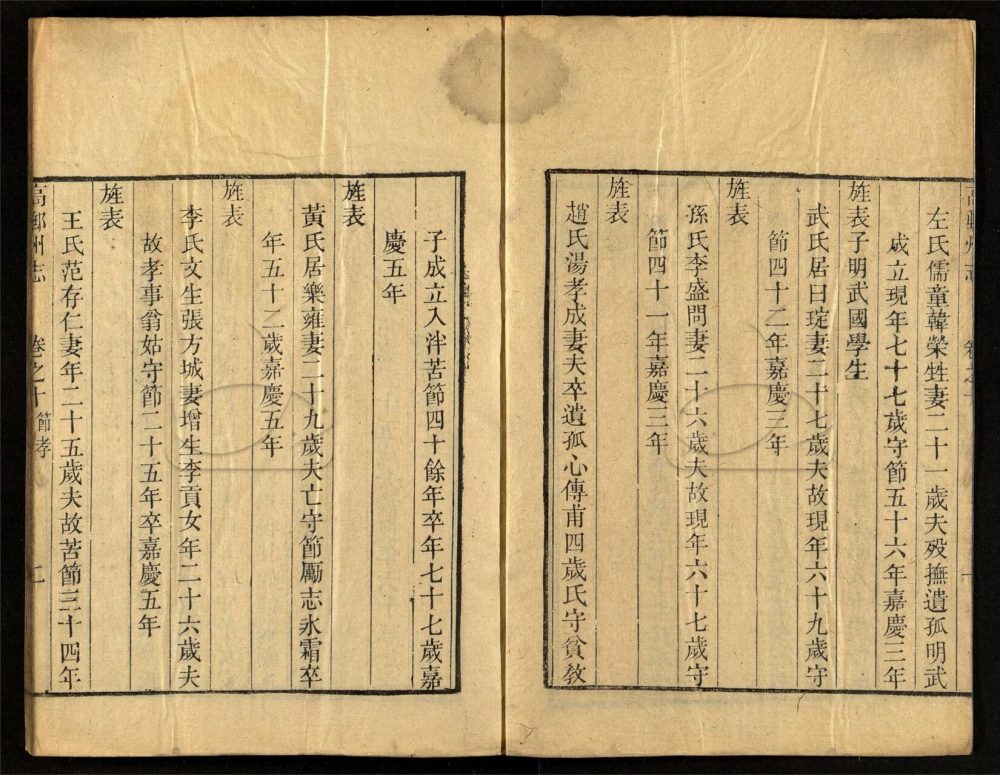 高郵州志 卷之十
左氏儒童韓榮甡妻二十一歲夫歿撫遺孤明武
成立現年七十七歲守節五十六年嘉慶三年
旌表子明武國學生
武氏居曰琁妻二十七歲夫故現年六十九歲守
節四十二年嘉慶三年
旌表
孫氏李盛問妻二十六歲夫故現年六十七歲守
節四十一年嘉慶三年
旌表
趙氏湯孝成妻夫卒遺孤心傳甫四歲氏守貧敎
子成立入泮苦節四十餘年卒年七十七歲嘉
慶五年
旌表
黃氏居樂雍妻二十九歲夫亡守節勵志氷霜卒
年五十二歲嘉慶五年
旌表
李氏文生張方城妻增生李貢女年二十六歲夫
故孝事翁姑守節二十五年卒嘉慶五年
旌表
王氏范存仁妻年二十五歲夫故苦節三十四年
高郵州志 卷之十 節孝 二